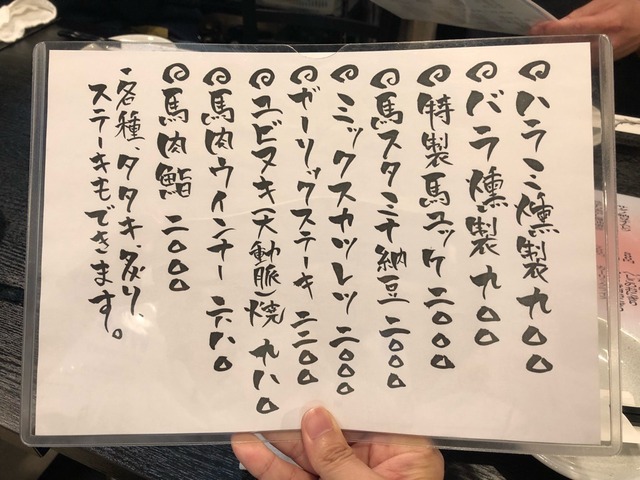 ハラミ燻製 九〇〇
バラ燻製 九〇〇
特製馬ユッケ 二〇〇〇
馬スタミナ納豆 二〇〇〇
ミックスカツレツ 二〇〇〇
ガーリックステーキ 二二〇〇
ユビヌキ(大動脈)焼 九八〇
馬肉ウインナー 六八〇
馬肉鮨 二〇〇〇
・各種、タタキ、炙り、
ステーキもできます。